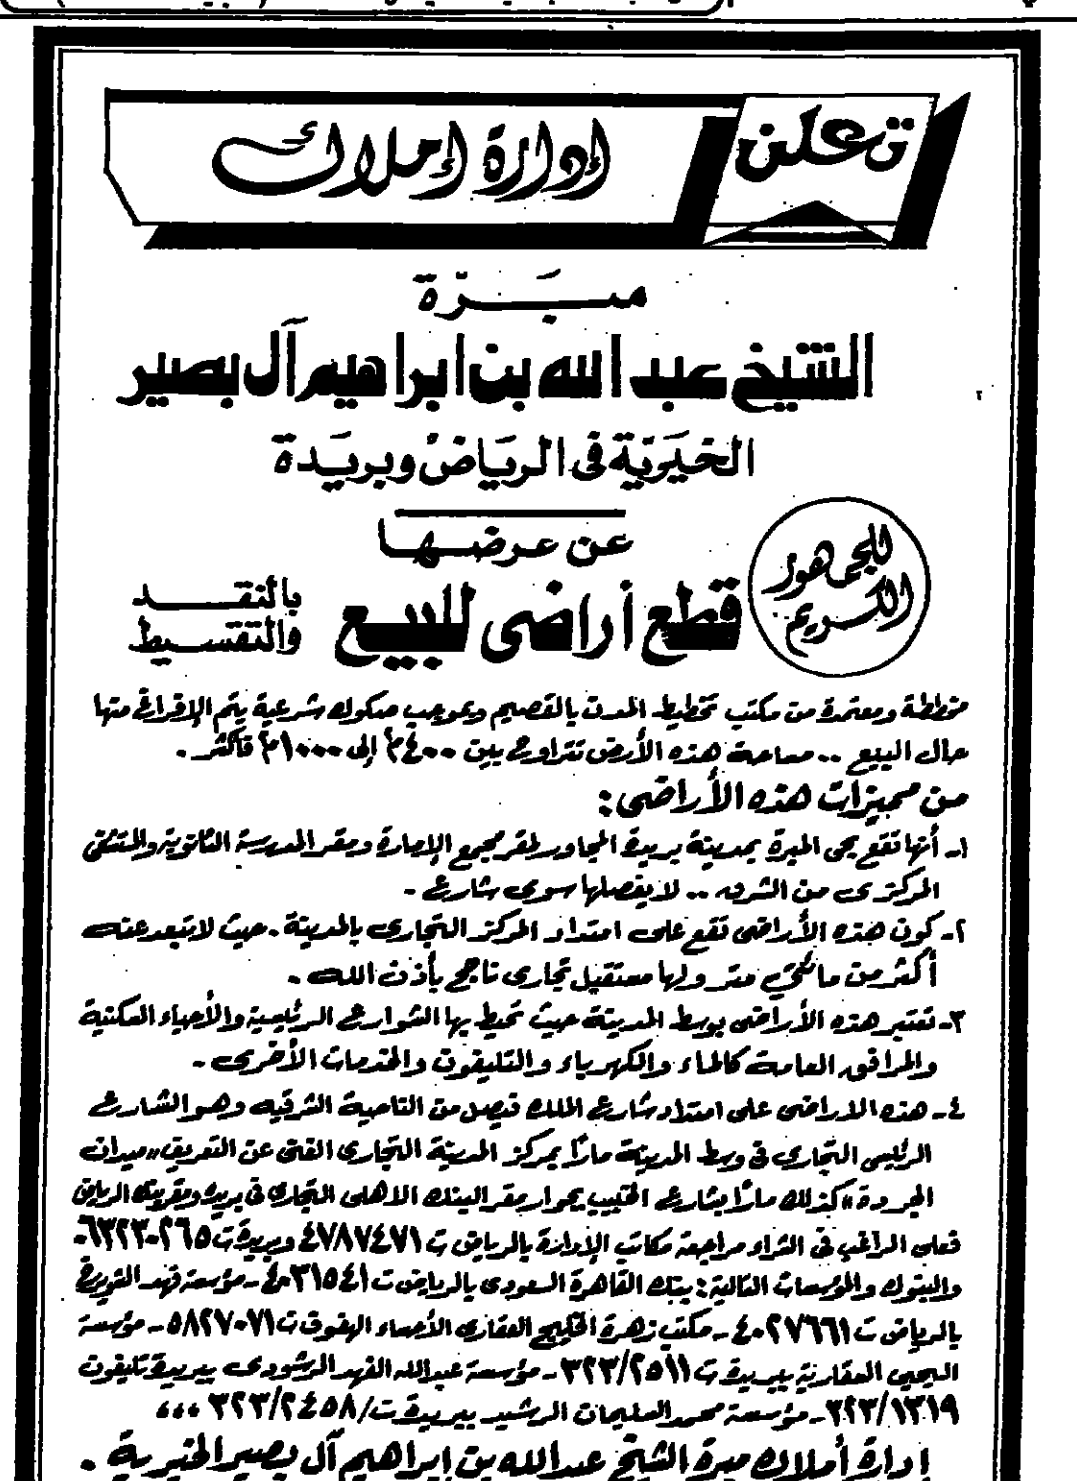 تعلن
إدارة إملاك
مبَرّة
الشيخ عبد الله بن ابراهيم آل بصير
الخيَريّة في الريَاض وبريَدة
للجمهور
الكريم
عن عرضها
قطع أراضي للبيع
بالنقد
والتقسيط
مخططة ومعتمدة من مكتب تخطيط المدن بالقصيم وبموجب صكوك شرعية يتم الإفراغ منها
حال البيع .. مساحة هذه الأرض تتراوح بين ٤٠٠م٢ إلى ١٠٠٠م٢ فأكثر .
من مميزات هذه الأراضي :
١- أنها تقع بحي المبرة بمدينة بريدة المجاور لمقر مجمع الإمارة ومقر المدرسة الثانوية والمستشفى
المركزى من الشرق .. لا يفصلها سوى شارع .
٢- كون هذه الأراضى تقع على امتداد المركز التجارى بالمدينة . حيث لا تبعد عنه
أكثر من مائتي متر ولها مستقبل تجارى ناجح بأذن الله .
٣- تعتبر هذه الأراضى بوسط المدينة حيث تحيط بها الشوارع الرئيسية والأحياء السكنية
والمرافق العامة كالماء والكهرباء والتليفون والخدمات الأخرى .
٤- هذه الاراضى على امتداد شارع الملك فيصل من الناحية الشرقيه وهو الشارع
الرئيسى التجارى في وسط المدينة مارًا بمركز المدينة التجارى الغنى عن التعريف «ميدان
الجردة» كذلك مارًا بشارع الخبيب بجوار مقر البنك الاهلى التجارى في بريده ومقر بنك الرياض
فعلى الراغب في الشراء مراجعة مكاتب الإدارة بالرياض ت ٤٧٨٧٤٧١ وبريدة ت ٠٦٣٢٣٠٢٦٥
والبنوك والمؤسسات التالية : بنك القاهرة السعودى بالرياض ت ٤٠٣١٥٤١ - مؤسسة فهد الشويرخ
بالرياض ت ٤٠٢٧٦٦١ - مكتب زهرة الخليج العقارى الأحساء الهفوف ت ٥٨٢٧٠٧١ - مؤسسة
اليحيى العقارية ببريدة ت ٣٢٣/٢٥١١ - مؤسسة عبدالله الفهد الرشودى ببريدة تليفون
٣٢٣/١٣١٩ - مؤسسة محمد السليمان الرشيد ببريدة ت/ ٣٢٣/٢٤٥٨ ،،،
إدارة أملاك مبرة الشيخ عبدالله بن إبراهيم آل بصير الخيرية .